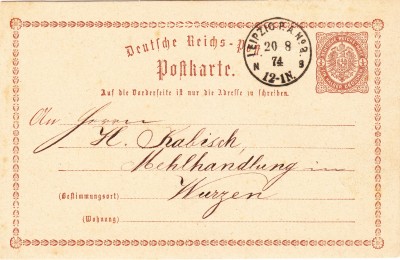 Deutsche Reichs-P
LEIPZIG P.A. No 3.
20 8
74
N 3
12-1N.
Postkarte.
Auf die Vorderseite ist nur die Adresse zu schreiben.
An Herrn
H. Kabisch,
Mehlhandlung in
Wurzen
(Bestimmungsort)
(Wohnung)